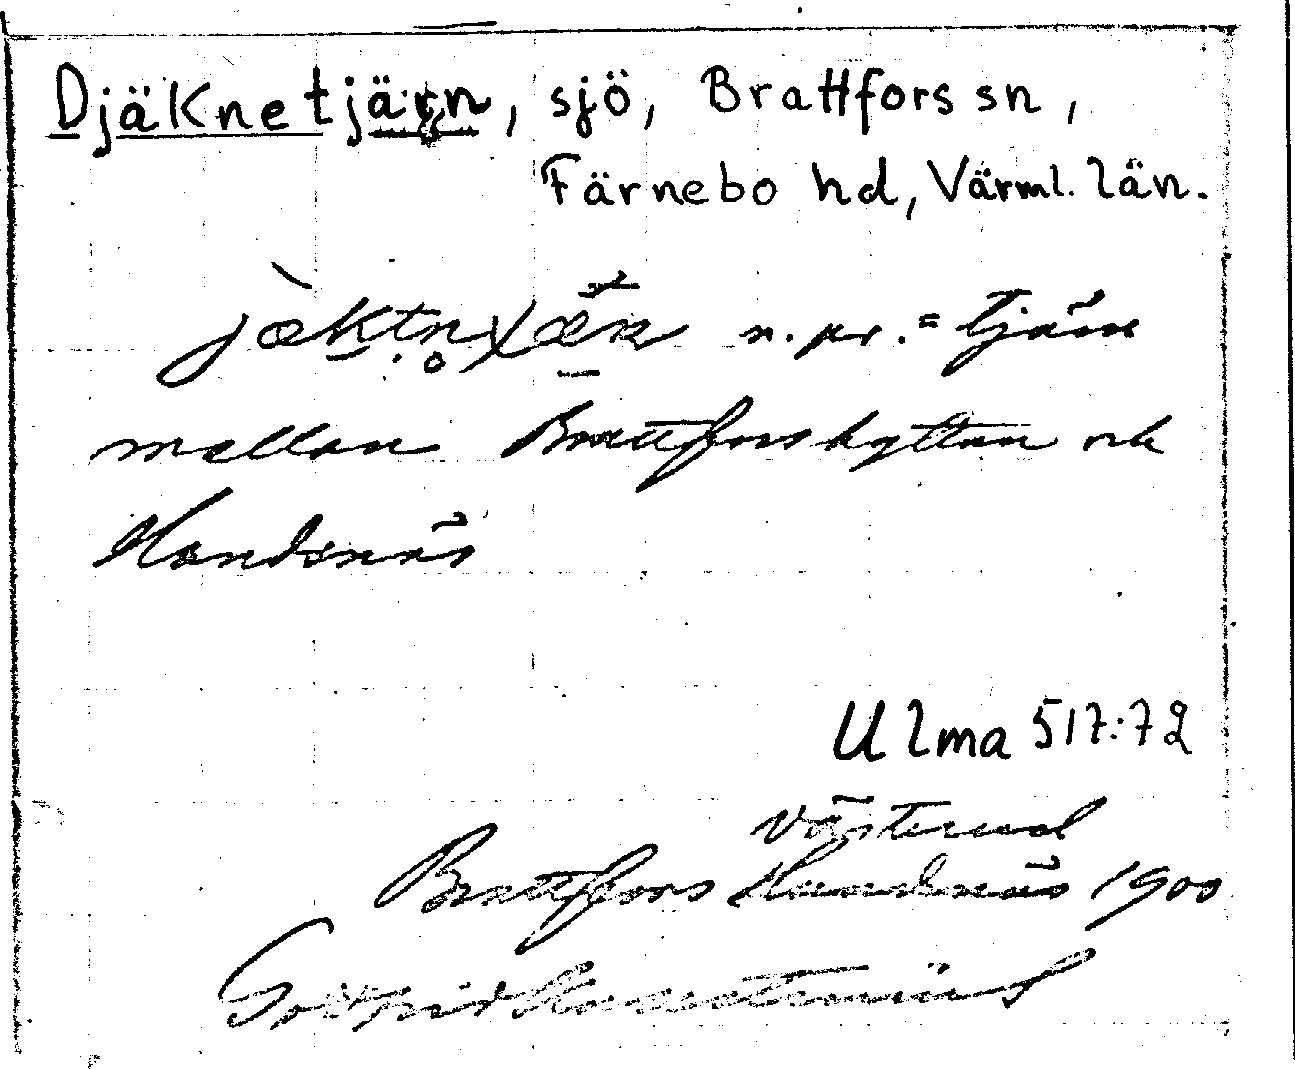 Djäknetjärn, sjö, Brattfors sn,
Färnebo hd, Värml. län.
n. pr. = tjärn
mellan Brattforshyttan och
Handsnäs
Ulma 517:72
Västerud
Brattfors Handsnäs 1900
Gottfrid